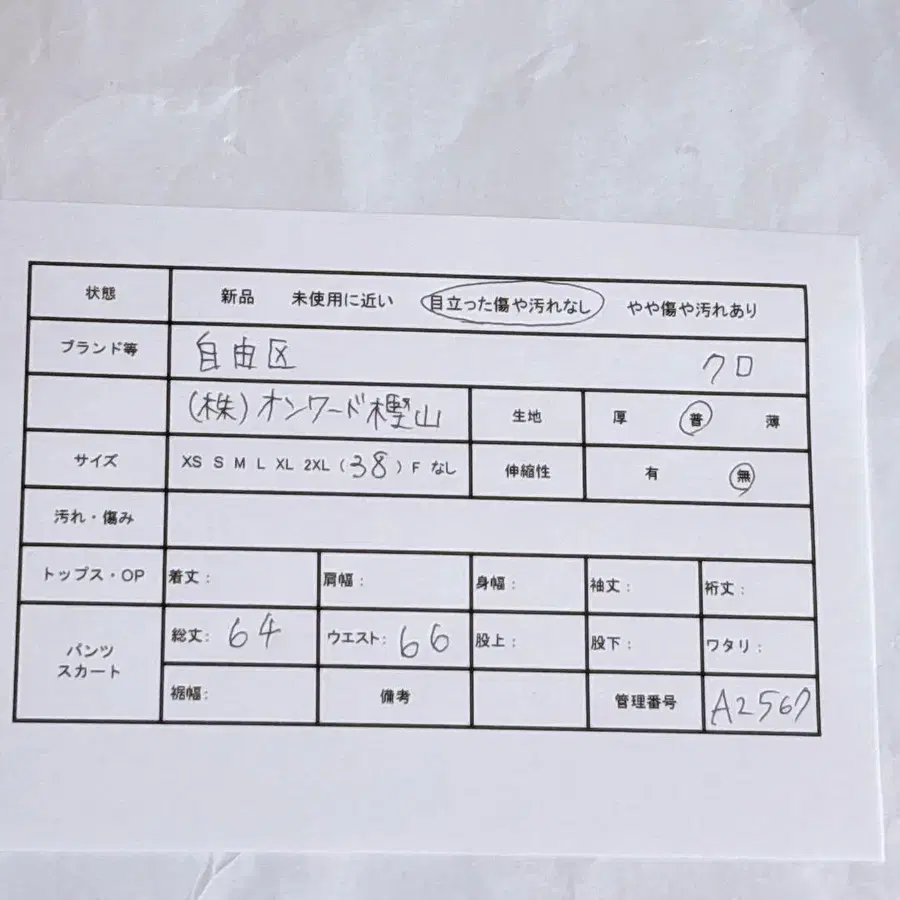 状態 新品 未使用に近い 目立った傷や汚れなし やや傷や汚れあり
ブランド等 自由区 クロ
(株)オンワード樫山 生地 厚 普 薄
サイズ XS S M L XL 2XL (38) F なし 伸縮性 有 無
汚れ・傷み
トップス・OP 着丈: 肩幅: 身幅: 袖丈: 裄丈:
パンツ スカート 総丈: 64 ウエスト: 66 股上: 股下: ワタリ:
裾幅: 備考 管理番号 A2567